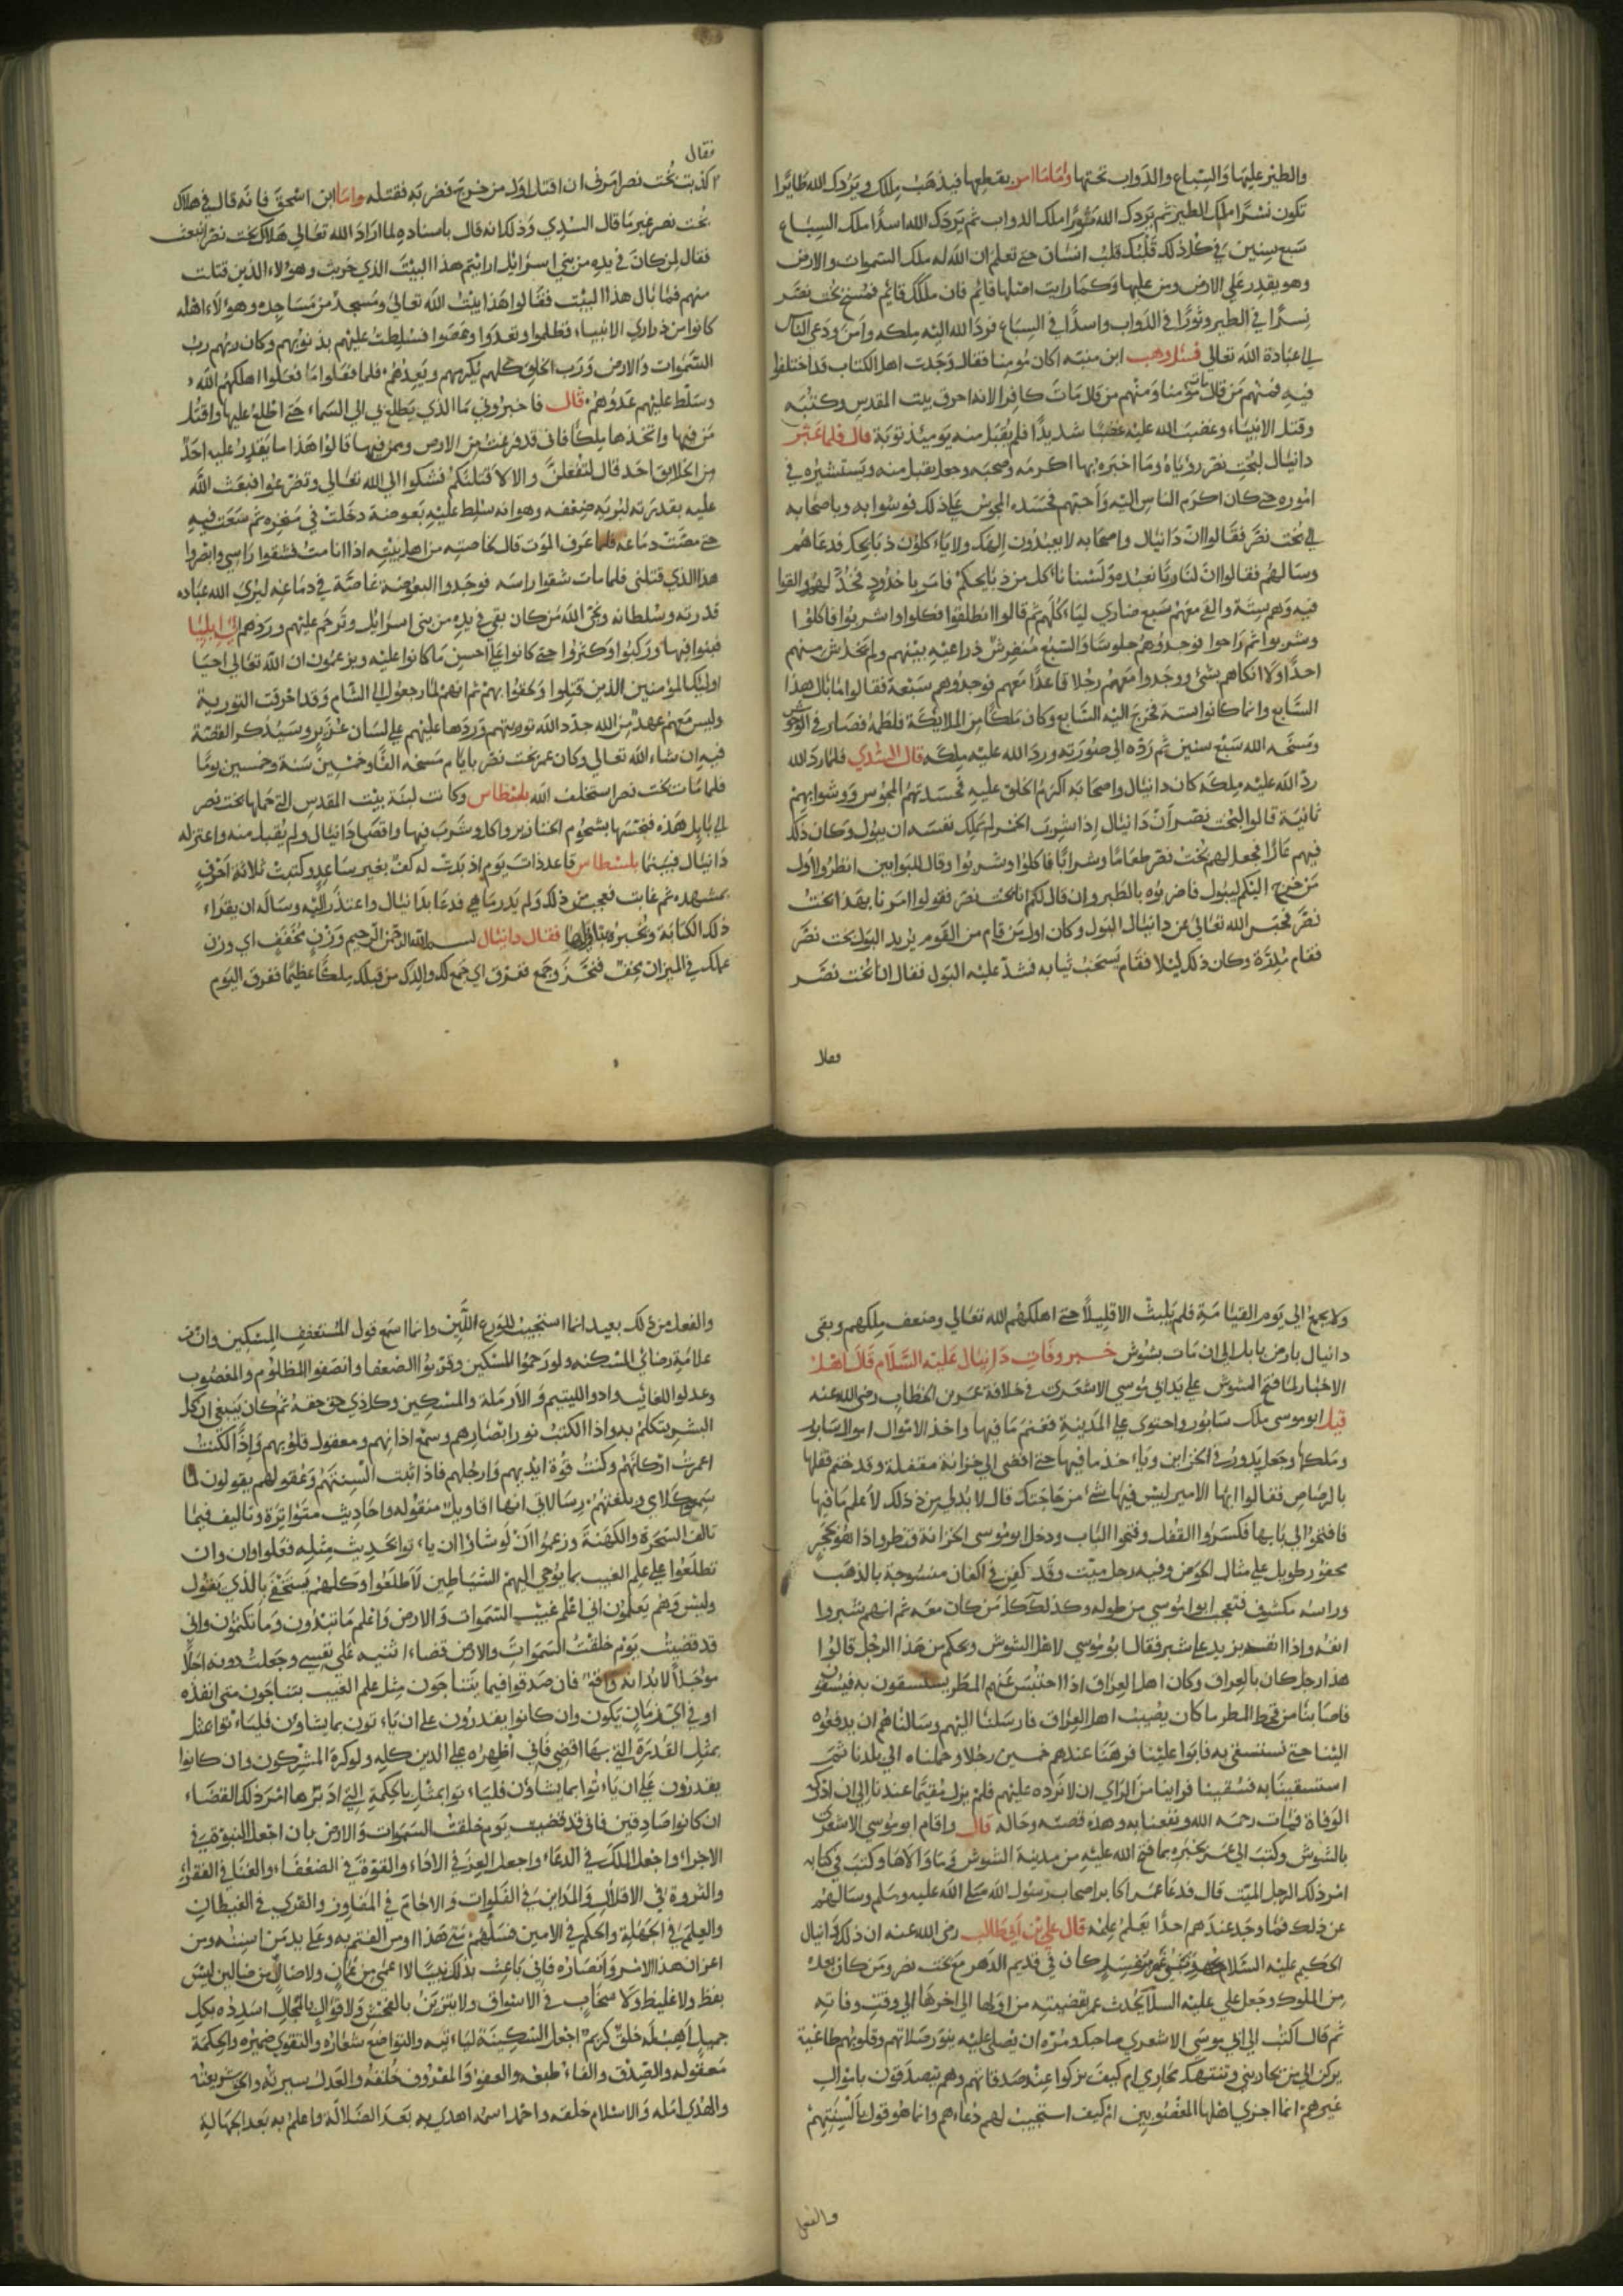 والطير عليها والسباع والدواب تحتها واما ما امر بقطعها فيذهب ملكك ويردك الله طائرا
تكون نسرا ملك الطير ثم يردك الله ثورا ملك الدواب ثم يردك الله اسدا ملك السباع
سبع سنين في كل ذلك قلبك قلب انسان حتى تعلم ان الله له ملك السموات والارض
وهو يقدر على الارض ومن عليها وكما رايت اصلها قائم فان ملكك قائم فمسخ بخت نصر
نسرا في الطير وثورا في الدواب واسدا في السباع فرد الله اليه ملكه وامن ودعي الناس
الى عبادة الله تعالى فسئل وهب ابن منبه اكان مؤمنا فقال وجدت اهل الكتاب قد اختلفوا
فيه فمنهم من قال مات مؤمنا ومنهم من قال مات كافرا لانه احرق بيت المقدس وكتبه
وقتل الانبياء وغضب الله عليه غضبا شديدا فلم يقبل منه يومئذ توبة قال فلما عبر
دانيال لبخت نصر رؤياه وما اخبره بها اكرمه وصحبه وجعل يقبل منه ويستشيره في
اموره حتى كان اكرم الناس اليه واحبهم فحسده المجوس على ذلك فوشوا به وباصحابه
الى بخت نصر فقالوا ان دانيال واصحابه لا يعبدون الهك ولا ياكلون ذبائحك فدعاهم
وسالهم فقالوا ان لنا ربا نعبده ولسنا ناكل من ذبائحكم فامر باخدود فخد لهم والقوا
فيه وهم ستة والقي معهم سبع ضاري لياكلهم ثم قالوا انطلقوا فكلوا واشربوا فاكلوا
وشربوا ثم راحوا فوجدوهم جلوسا والسبع مفترش ذراعيه بينهم ولم يخدش منهم
احدا ولا انكاهم بشئ ووجدوا معهم رجلا قاعدا معهم فوجدوهم سبعة فقالوا ما بال هذا
السابع وانما كانوا ستة فخرج اليه السابع وكان ملكا من الملائكة فلطمه فصار في الوحوش
ومسخه الله سبع سنين ثم رده الى صورته ورد الله عليه ملكه قال السدي فلما رد الله
رد الله عليه ملكه كان دانيال واصحابه اكرم الخلق عليه فحسدتهم المجوس ووشوا بهم
ثانية قالوا لبخت نصر ان دانيال اذا شرب الخمر لم يملك نفسه ان يبول وكان ذلك
فيهم عارا فجعل لهم بخت نصر طعاما وشرابا فاكلوا وشربوا وقال للبوابين انظروا اول
من خرج اليكم ليبول فاضربوه بالطبر وان قال لكم انا بخت نصر فقولوا امرنا بهذا بخت
نصر فحبس الله تعالى عن دانيال البول وكان اول من قام من القوم يريد البول بخت نصر
فقام مدلا وكان ذلك ليلا فقام يسحب ثيابه فشد عليه البواب فقال انا بخت نصر
فقال
كذبت بخت نصر امرني ان اقتل اول من خرج فضربه فقتله واما ابن اسحق فانه قال في هلاك
بخت نصر غير ما قال السدي وذلك انه قال باسناده لما اراد الله تعالى هلاك بخت نصر انبعث
فقال لمن كان في يده من بني اسرائيل ارايتم هذا البيت الذي خربت وهؤلاء الذين قتلت
منهم فما بال هذا البيت فقالوا هذا بيت الله تعالى ومسجد من مساجده وهؤلاء اهله
كانوا من ذراري الانبياء فظلموا وتعدوا وعصوا فسلطت عليهم بذنوبهم وكان ربهم رب
السموات والارض ورب الخلق كلهم يكرمهم ويعزهم فلما فعلوا ما فعلوا اهلكهم الله
وسلط عليهم عدوهم قال فاخبروني ما الذي يطلع بي الى السماء حتى اطلع عليها واقتل
من فيها واتخذها ملكا فاني قد فرغت من الارض ومن فيها قالوا هذا ما يقدر عليه احد
من الخلايق احد قال لتفعلن والا لاقتلنكم فشكوا الى الله تعالى وتضرعوا فبعث الله
عليه بقدرته ليريه ضعفه وهوانه سلط عليه بعوضة دخلت في منخره ثم سعت فيه
حتى مضت دماغه فلما عرف الموت قال لخاصته من اهل بيته اذا انا مت فشقوا راسي وانظروا
هذا الذي قتلني فلما مات شقوا راسه فوجدوا البعوضة غاصة في دماغه ليري الله عباده
قدرته وسلطانه ونجى الله من كان بقي في يده من بني اسرائيل وترحم عليهم وردهم الى ايليا
فبنوا فيها وركبوا وكثروا حتى كانوا على احسن ما كانوا عليه ويزعمون ان الله تعالى احيا
اولئك المؤمنين الذين قتلوا ولحقوا بهم ثم انهم لما رجعوا الى الشام وقد احرقت التورية
وليس معهم عهد من الله جدد الله توريتهم وردها عليهم على لسان عزير وسيذكر القصة
فيه ان شاء الله تعالى وكان عمر بخت نصر بايام مسخه الفا وخمسين سنة وخمسين يوما
فلما مات بخت نصر استخلف الله بلسطاس وكانت لبنة بيت المقدس التي حملها بخت نصر
الى بابل هذه فنجسها بشحوم الخنازير واكل وشرب فيها واقصى دانيال ولم يقبل منه واعتزله
دانيال فبينما بلسطاس قاعد ذات يوم اذ بدت له كف بغير ساعد وكتبت ثلاثة احرف
بمشهده ثم غابت فعجب من ذلك ولم يدر ما هي فدعا بدانيال واعتذر اليه وساله ان يقراء
ذلك الكتابة ويخبره بتاويلها فقال دانيال بسم الله الرحمن الرحيم وزن فخفف اي وزن
عملك في الميزان فخف فنجز وجمع ففرق اي جمع لك والدك من قبلك ملكا عظيما ففرق اليوم
ولا يجمع الى يوم القيامة فلم يلبث الا قليلا حتى اهلكهم الله تعالى وضعف ملكهم وبقى
دانيال بارض بابل الى ان مات بسوس خبر وفات دانيال عليه السلام قال اهل
الاخبار لما فتح السوس على يد ابي موسى الاشعري في خلافة عمر بن الخطاب رضي الله عنه
قيل ابو موسى ملك سابور واحتوى على المدينة فغنم ما فيها واخذ الاموال اموال سابور
وملكها وجعل يدور في الخزاين وياخذ ما فيها حتى افضى الى خزانة مقفلة وقد ختم قفلها
بالرصاص فقالوا ايها الامير ليس فيها شئ من حاجتك قال لا بد لي من ذلك لاعلم ما فيها
فافتحوا لي بابها فكسروا القفل وفتحوا الباب ودخل ابو موسى الخزانة فنظر واذا هو بحجر
محفور طويل على مثال الحوض وفيه رجل ميت وقد كفن في اكفان منسوجة بالذهب
وراسه مكشوف فتعجب ابو موسى من طوله وكذلك كل من كان معه ثم انهم شبروا
انفه واذا انفه يزيد على شبر فقال ابو موسى لاهل السوس ويحكم من هذا الرجل قالوا
هذا رجل كان بالعراق وكان اهل العراق اذا احتبس عنهم المطر يستسقون به فيسقون
فاصابنا من قحط المطر ما كان يصيب اهل العراق فارسلنا اليهم وسالناهم ان يدفعوه
الينا حتى نستسقي به فابوا علينا فرهنا عندهم خمسين رجلا وحملناه الى بلدنا ثم
استسقينا به فسقينا فراينا من الراي ان لا نرده عليهم فلم يزل مقيما عندنا الى ان ادركته
الوفاة فمات رحمه الله ونفعنا به وهذه قصته وحاله قال واقام ابو موسى الاشعري
بالسوس وكتب الى عمر يخبره بما فتح الله عليه من مدينة السوس وما والاها وكتب في كتابه
امر ذلك الرجل الميت قال فدعا عمر اكابر اصحاب رسول الله صلى الله عليه وسلم وسالهم
عن ذلك فما وجد عندهم احدا يعلم علمه قال علي بن ابي طالب رضي الله عنه ان ذلك دانيال
الحكيم عليه السلام كان في قديم الدهر مع بخت نصر ومن كان بعده
من الملوك وجعل علي عليه السلام يحدث عمر بقضيته من اولها الى اخرها الى وقت وفاته
ثم قال اكتب الى ابي موسى الاشعري صاحبك ومره ان يصلي عليه صلاتهم وقلوبهم طاغية
يركن الى من يحاربني وتنتهك محارمي ام كيف تزكوا عنده صدقاتهم وهم يتصدقون باموال
غيرهم انما اجزي اهلها المغصوبين ام كيف استجيب لهم دعاءهم وانما هو قول بالسنتهم
والفعل
والفعل من ذلك بعيد انما استجيب للورع اللين وانما اسمع قول المستعفف المسكين وان من
علامة رضائي المسكنه ولو رحموا المسكين وقربوا الضعفا وانصفوا المظلوم والمغصوب
وعدلوا للغائب وادوا لليتيم والارملة والمسكين وكل ذي حق حقه ثم كان ينبغي ان اكلم
البشر بتكلم بدو اذا لكنت نور ابصارهم وسمع اذانهم ومعقول قلوبهم واذا لكنت
اعمرت اركانهم وكنت قوة ايديهم وارجلهم فاذا ثبت السنتهم وعقولهم يقولون لما
سمعوا كلامي وبلغتهم رسالاتي انها اقاويل منقوله واحاديث متواترة وتاليف فيما
تالف السحرة والكهنة وزعموا ان لو شاؤا ان ياتوا بحديث مثله فعلوا وان
تطلعوا على علم الغيب بما يوحي اليهم الشياطين لاطلعوا وكلهم يستخفي بالذي يقول
وليس وهم يعلمون اني اعلم غيب السموات والارض واعلم ما تبدون وما تكتمون واني
قد قضيت يوم خلقت السموات والارض قضاء اثبته على نفسي وجعلت دونه اجلا
مؤجلا لا بد انه واقع فان صدقوا فيما يتناجون من علم الغيب يتناجون متى انفذه
او في اي زمان يكون وان كانوا يقدرون على ان ياتون بما يشاؤن فلياتوا بمثل
بمثل القدرة التي بها اقضي فاني اظهره على الدين كله ولو كره المشركون وان كانوا
يقدرون على ان ياتوا بما يشاؤن فلياتوا بمثل بالحكمة التي ادبر بها امر ذلك القضاء
ان كانوا صادقين فاني قد قضيت يوم خلقت السموات والارض بان اجعل النبوة في
الاجراء واجعل الملك في الدعاء واجعل العز في الاذلاء والقوة في الضعفاء والغنا في الفقراء
والثروة في الاقلال والمداين في الفلوات والاجام في المفاوز والقرى في الغيطان
والعلم في الجهلة والحكم في الاميين فسلهم متى هذا ومن القيم به وعلى يد من اسببه ومن
اعوان هذا الامر وانصاره فاني باعث بذلك نبيا لا اعمى من عميان ولا ضال من ضالين ليس
بفظ ولا غليظ ولا سخاب في الاسواق ولا متزين بالفحش ولا قوال بالمحال اسدده بكل
جميل اهب له خلق كريم اجعل السكينة لباسه والتواضع شعاره والتقوى ضميره والحكمة
معقوله والصدق والوفاء طبعه والعفو والمعروف خلقه والعدل سيرته والحق شريعته
والهدى امامه والاسلام خلقه واحمد اسمه اهدي به بعد الضلالة واعلم به بعد الجهالة